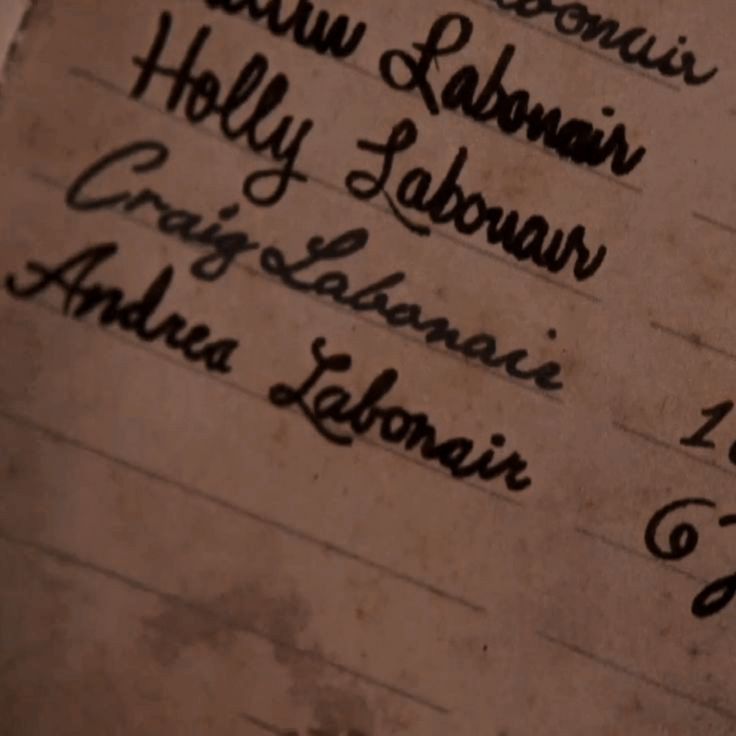 Labonair
Holly Labonair
Craig Labonair
Andrea Labonair